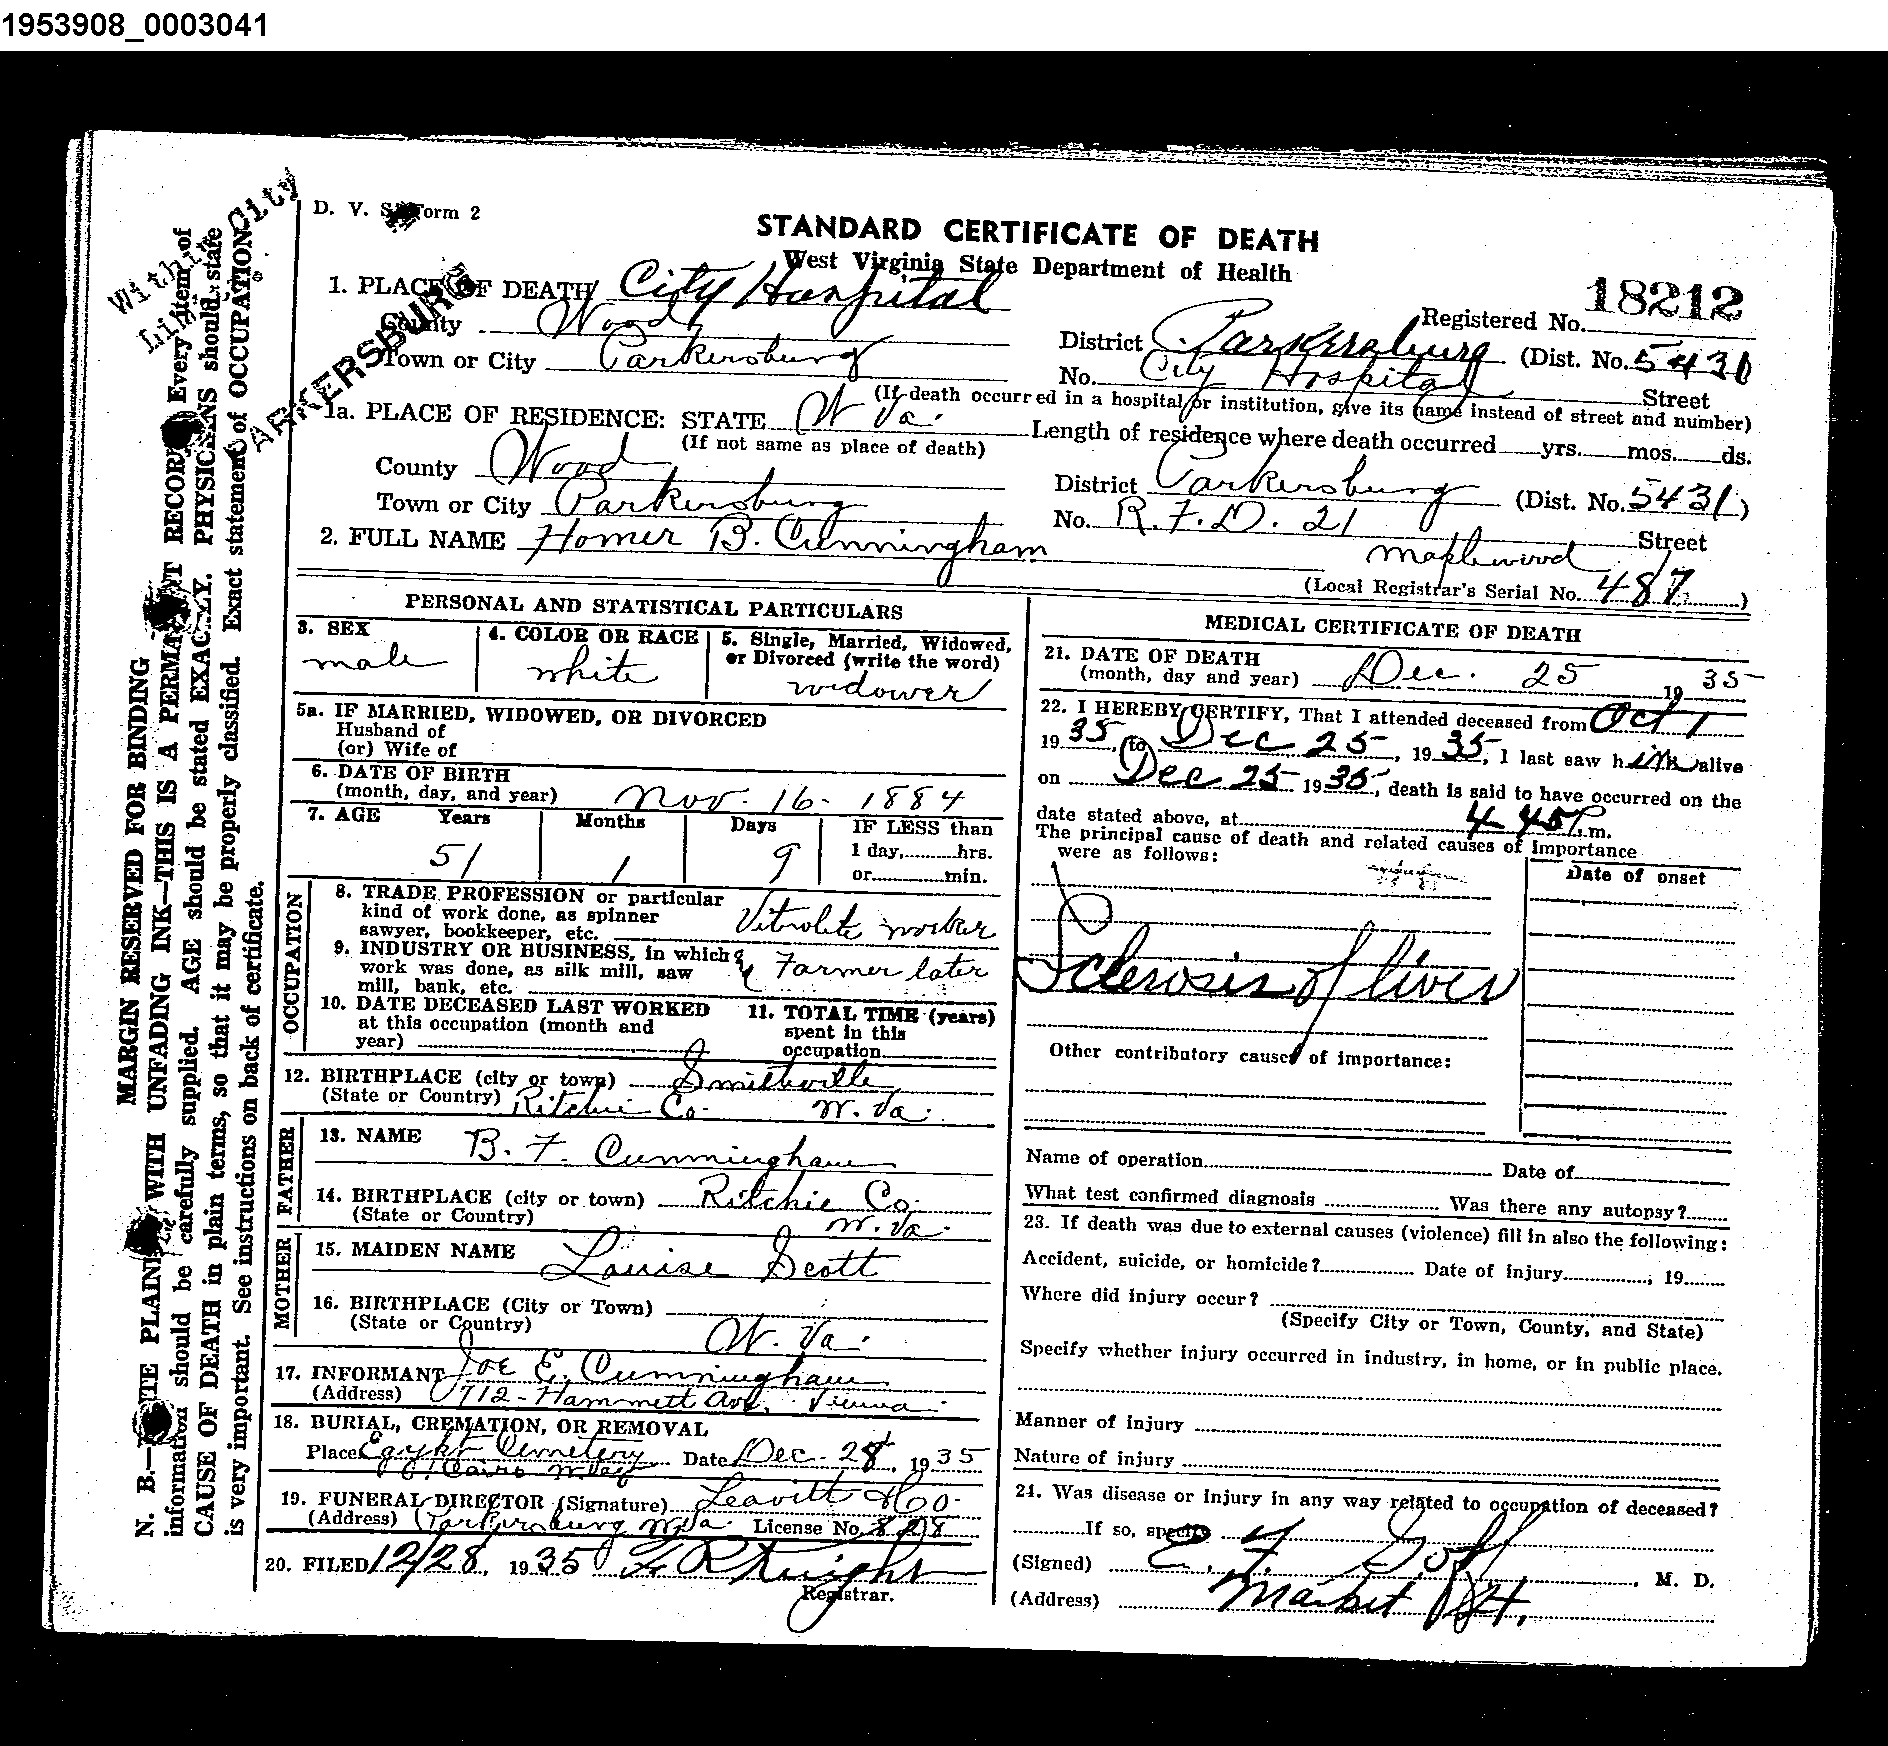 1953908_0003041
D. V. S. Form 2
Within City
Limits of
PARKERSBURG
STANDARD CERTIFICATE OF DEATH
West Virginia State Department of Health
1. PLACE OF DEATH City Hospital
18212
Registered No.
County Wood
District Parkersburg (Dist. No. 5431
Town or City Parkersburg
No. City Hospital Street
(If death occurred in a hospital or institution, give its name instead of street and number)
1a. PLACE OF RESIDENCE: STATE W Va.
(If not same as place of death)
Length of residence where death occurred yrs. mos. ds.
County Wood
District Parkersburg (Dist. No. 5431)
Town or City Parkersburg
No. R. F. D. 21 Street
2. FULL NAME Homer B. Cunningham
Maplewood
(Local Registrar's Serial No. 487)
PERSONAL AND STATISTICAL PARTICULARS
3. SEX
male
4. COLOR OR RACE
white
5. Single, Married, Widowed,
or Divorced (write the word)
widower
5a. IF MARRIED, WIDOWED, OR DIVORCED
Husband of
(or) Wife of
6. DATE OF BIRTH
(month, day, and year) Nov. 16 - 1884
7. AGE Years Months Days IF LESS than
51 1 9 1 day, hrs.
or min.
OCCUPATION
8. TRADE PROFESSION or particular
kind of work done, as spinner
sawyer, bookkeeper, etc. Vitrolite worker
9. INDUSTRY OR BUSINESS, in which
work was done, as silk mill, saw
mill, bank, etc. & Farmer later
10. DATE DECEASED LAST WORKED
at this occupation (month and
year)
11. TOTAL TIME (years)
spent in this
occupation
12. BIRTHPLACE (city or town) Smithville
(State or Country) Ritchie Co. W. Va.
FATHER
13. NAME B. F. Cunningham
14. BIRTHPLACE (city or town) Ritchie Co.
(State or Country) W. Va.
MOTHER
15. MAIDEN NAME Louise Scott
16. BIRTHPLACE (City or Town)
(State or Country) W. Va.
17. INFORMANT Joe E. Cunningham
(Address) 712 - Hammett Ave. Vienna
18. BURIAL, CREMATION, OR REMOVAL
Place Egypt Cemetery Date Dec. 28, 1935
Cairo W. Va
19. FUNERAL DIRECTOR (Signature) Leavitt
(Address) Parkersburg W. Va. License No. 828
20. FILED 12/28, 1935 Knight
Registrar.
MEDICAL CERTIFICATE OF DEATH
21. DATE OF DEATH
(month, day and year) Dec. 25 1935
22. I HEREBY CERTIFY, That I attended deceased from Oct 1
1935, to Dec 25, 1935, I last saw him alive
on Dec 25 1935, death is said to have occurred on the
date stated above, at 4 45 P. m.
The principal cause of death and related causes of importance
were as follows:
Date of onset
Sclerosis of liver
Other contributory causes of importance:
Name of operation Date of
What test confirmed diagnosis Was there any autopsy?
23. If death was due to external causes (violence) fill in also the following:
Accident, suicide, or homicide? Date of injury , 19
Where did injury occur?
(Specify City or Town, County, and State)
Specify whether injury occurred in industry, in home, or in public place.
Manner of injury
Nature of injury
24. Was disease or injury in any way related to occupation of deceased?
If so, specify
(Signed) E. F. Goff, M. D.
(Address) Market St.
MARGIN RESERVED FOR BINDING
N. B.—WRITE PLAINLY WITH UNFADING INK—THIS IS A PERMANENT RECORD. Every item of
information should be carefully supplied. AGE should be stated EXACTLY. PHYSICIANS should state
CAUSE OF DEATH in plain terms, so that it may be properly classified. Exact statement of OCCUPATION
is very important. See instructions on back of certificate.